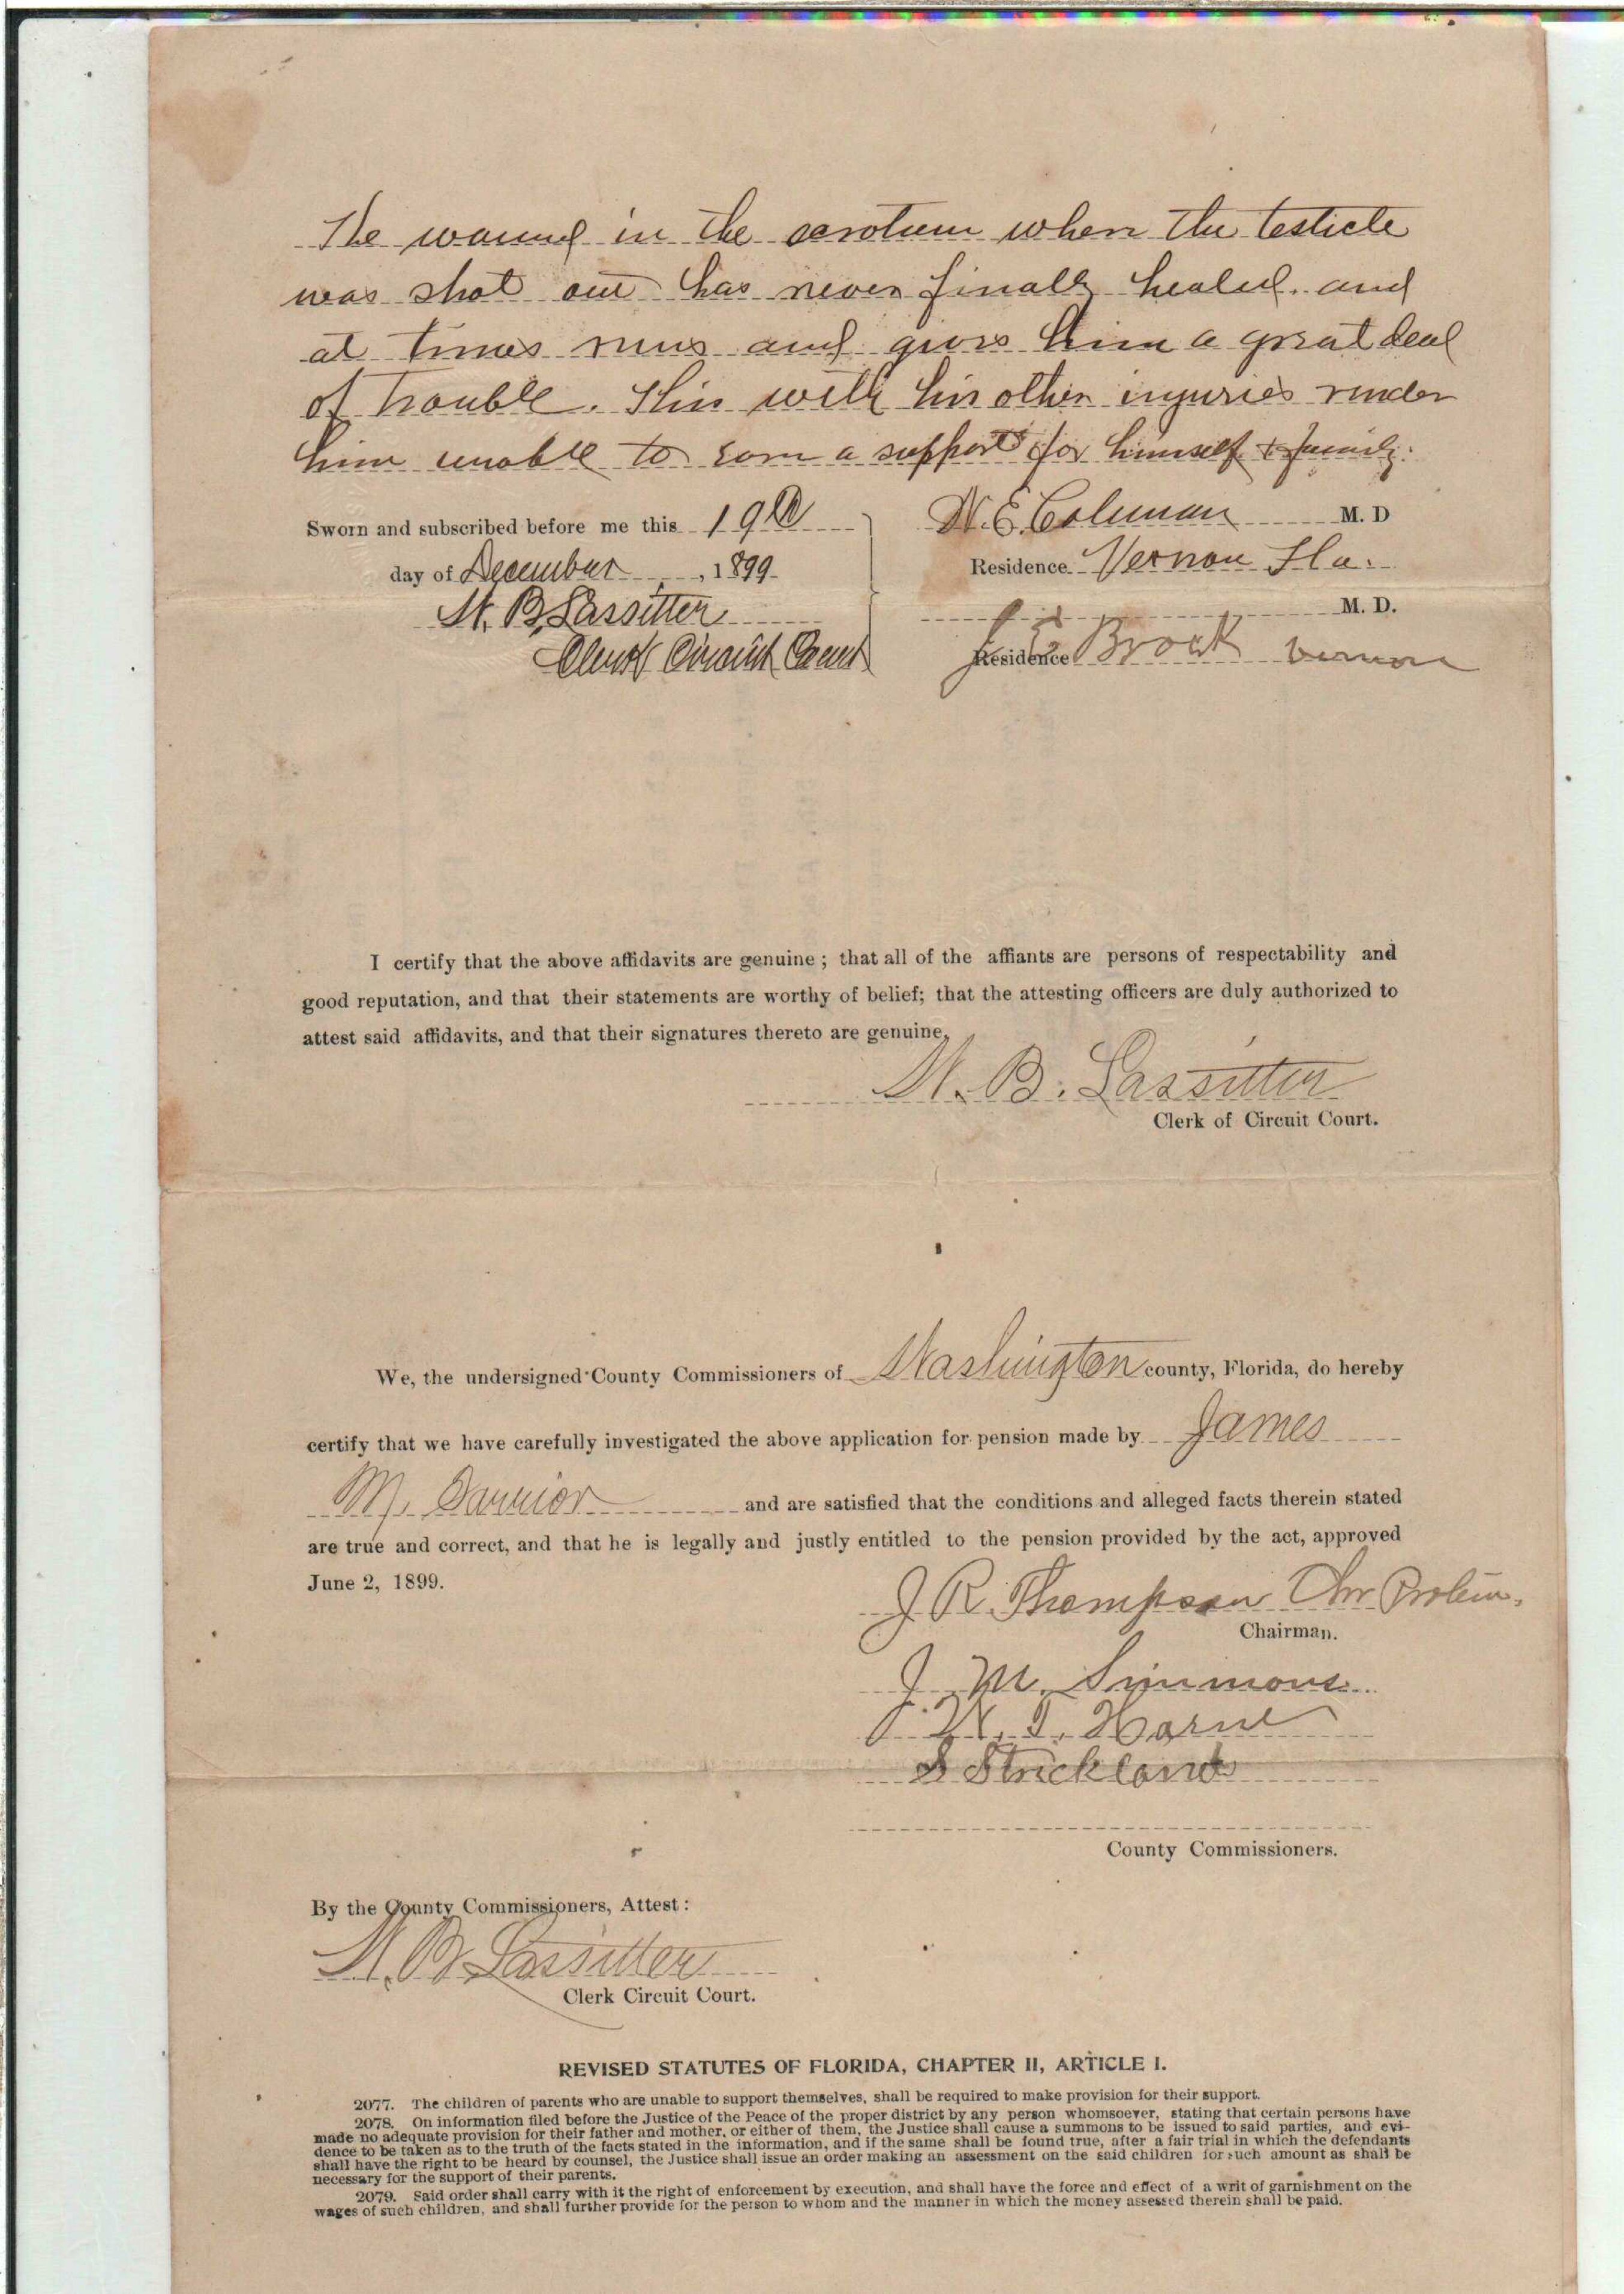 The wound in the scrotum when the testicle
was shot out has never finally healed and
at times runs and gives him a great deal
of trouble. This with his other injuries render
him unable to earn a support for himself & family.
Sworn and subscribed before me this 19th
day of December, 1899
W. B. Lassitter
Clerk Circuit Court
W. E. Coleman M. D
Residence Vernon Fla.
M. D.
Residence Brock Vernon
I certify that the above affidavits are genuine; that all of the affiants are persons of respectability and
good reputation, and that their statements are worthy of belief; that the attesting officers are duly authorized to
attest said affidavits, and that their signatures thereto are genuine,
W. B. Lassitter
Clerk of Circuit Court.
We, the undersigned County Commissioners of Washington county, Florida, do hereby
certify that we have carefully investigated the above application for pension made by James
M. and are satisfied that the conditions and alleged facts therein stated
are true and correct, and that he is legally and justly entitled to the pension provided by the act, approved
June 2, 1899.
J R Thompson Chr Protem.
Chairman.
J. M. Simmons
W. T. Horne
S Strickland
County Commissioners.
By the County Commissioners, Attest:
W. B. Lassitter
Clerk Circuit Court.
REVISED STATUTES OF FLORIDA, CHAPTER II, ARTICLE I.
2077. The children of parents who are unable to support themselves, shall be required to make provision for their support.
2078. On information filed before the Justice of the Peace of the proper district by any person whomsoever, stating that certain persons have
made no adequate provision for their father and mother, or either of them, the Justice shall cause a summons to be issued to said parties, and evi-
dence to be taken as to the truth of the facts stated in the information, and if the same shall be found true, after a fair trial in which the defendants
shall have the right to be heard by counsel, the Justice shall issue an order making an assessment on the said children for such amount as shall be
necessary for the support of their parents.
2079. Said order shall carry with it the right of enforcement by execution, and shall have the force and effect of a writ of garnishment on the
wages of such children, and shall further provide for the person to whom and the manner in which the money assessed therein shall be paid.